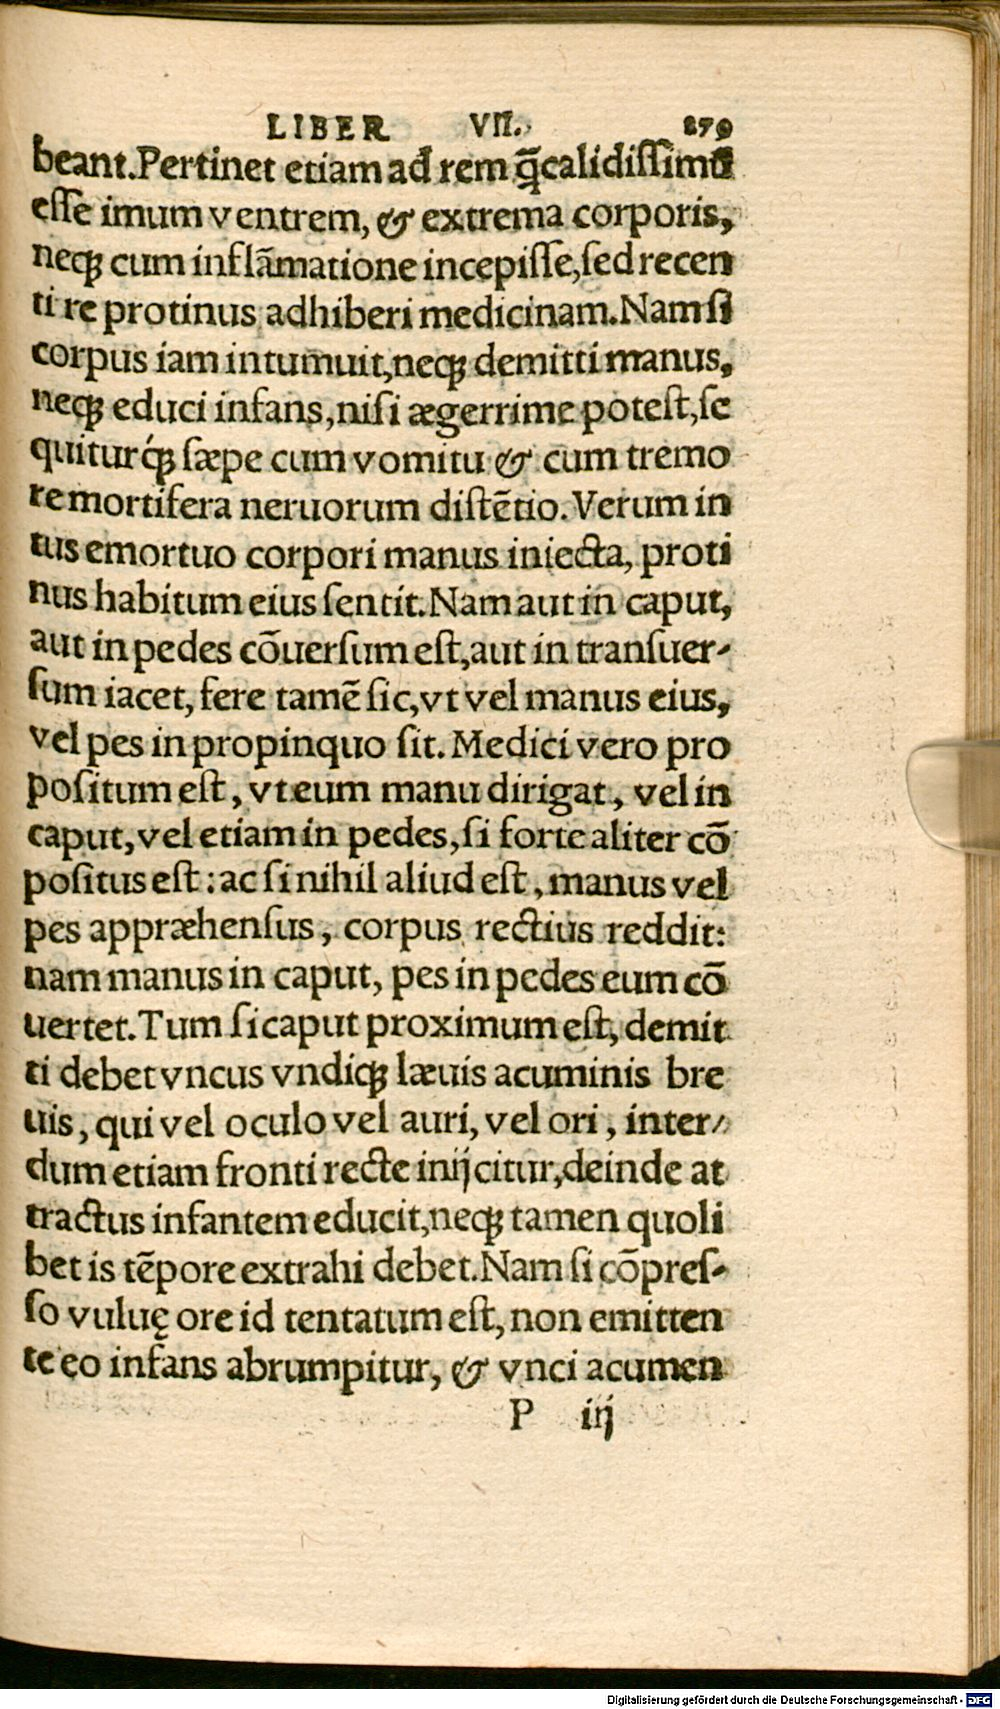 LIBER VII. 279
beant.Pertinet etiam ad rem q̄̃calidissimũ
esse imum ventrem, & extrema corporis,
neqꝫ cum inflãmatione incepisse,sed recen
ti re protinus adhiberi medicinam.Nam si
corpus iam intumuit,neqꝫ demitti manus,
neqꝫ educi infans,nisi ægerrime potest,se
quiturq́ꝫ sæpe cum vomitu & cum tremo
re mortifera neruorum distẽtio.Verum in
tus emortuo corpori manus iniecta, proti
nus habitum eius sentit.Nam aut in caput,
aut in pedes cõuersum est,aut in transuer-
sum iacet, fere tamẽ sic,vt vel manus eius,
vel pes in propinquo sit. Medici vero pro
positum est, vt eum manu dirigat, vel in
caput,vel etiam in pedes,si forte aliter cõ
positus est: ac si nihil aliud est, manus vel
pes appræhensus, corpus rectius reddit:
nam manus in caput, pes in pedes eum cõ
uertet.Tum si caput proximum est, demit
ti debet vncus vndiqꝫ læuis acuminis bre
uis, qui vel oculo vel auri, vel ori, inter-
dum etiam fronti recte iniijcitur,deinde at
tractus infantem educit,neqꝫ tamen quoli
bet is tẽpore extrahi debet.Nam si cõpres-
so vuluę ore id tentatum est, non emitten
te eo infans abrumpitur, & vnci acumen
P iij
Digitalisierung gefördert durch die Deutsche Forschungsgemeinschaft - DFG